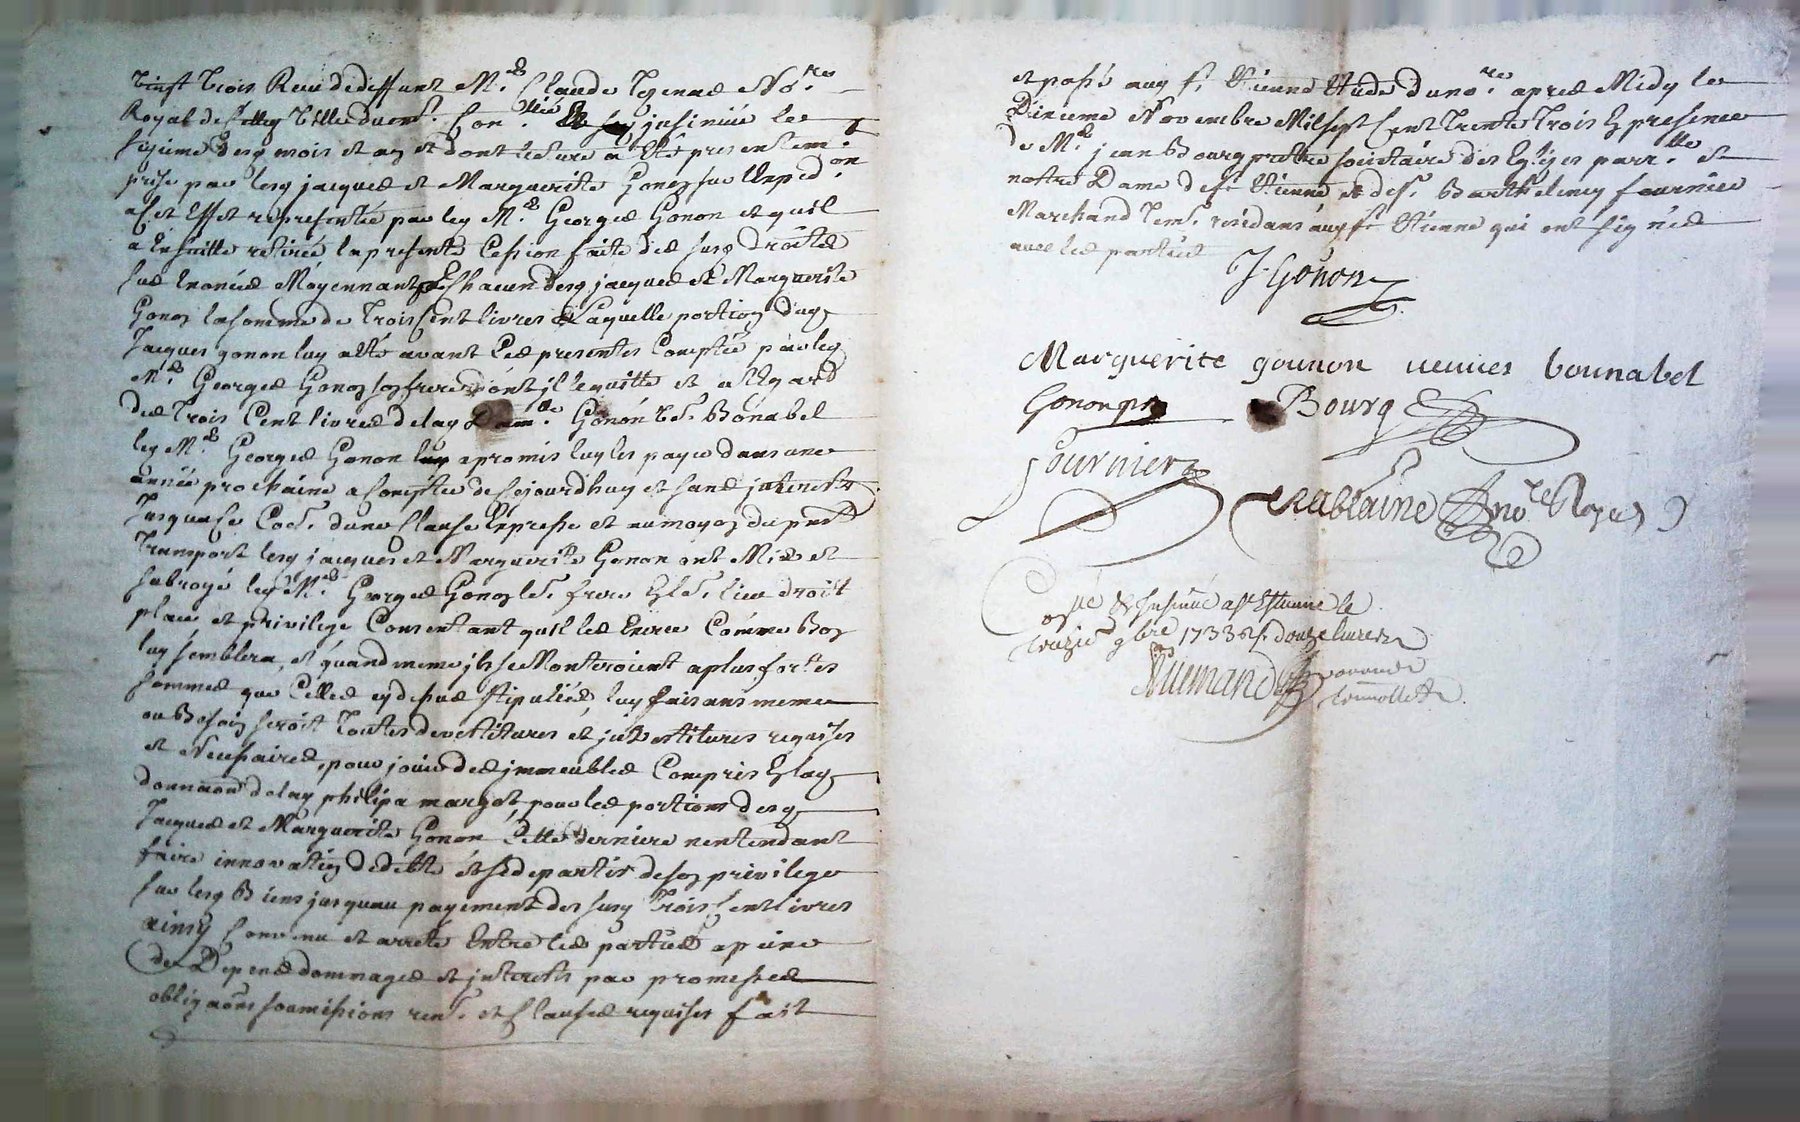 vingt trois Receu dedeffunt Me. Claude Tezenas Nore.
Royal de ville dument Con.llée insinuée le
sizieme desq mois et an et dont lecture a Eté presentemt.
prise par lesq jacques et Marguerite Gonon sur lexped.on
a cet Effet representée par leq Me. George Gonon et quil
a Ensuitte retirée la presente Cession faite des susq droits
sus Enoncés Moyennant Chacun desq jacques et Marguerite
Gonon la somme de Trois Cent livres Laquelle portion duq
Jacques gonon luy a Eté avant Ces presentes Comptée par leq
Me. George Gonon son frere dont jl le quitte et a l'Egard
des Trois Cent livres de laq Gonon Ve. Bonabel
leq Me. George Gonon a promis luy les payer dans une
année prochaine a compter de cejourdhuy et sans jnterets
Jusqua ce dune Clause Expresse et au moyen du pnt
Transport lesq jacques et Marguerite Gonon ont Mis et
subrogé leq Me. George Gonon frere lieu droit
place et privilege Consentant quil les Exerce Comme Bon
luy semblera, et quand meme jls se Monteroient a plus fortes
sommes que Celles cy dessus stipulées, luy faisans meme
ou Besoin seroit Toutes devetitures et jnvestitures requises
et Necessaires, pour jouir des jmmeubles Compris En laq
donnaon de laq philipa margot, pour les portions desq
Jacques et Marguerite Gonon Cette derniere nentendant
faire innovation de dette et se departir de son privilege
sur lesq Biens jusquau payement des susq Trois Cent livres
ainsy Convenu et arreté Entre les parties a peine
de Depens dommages et jnterets par promesses
obligaons soumissions renon. et Clauses requises fait
et passé auq St. Etienne Etude du nore. apres Midy le
Dixieme Novembre Mil sept Cent Trente Trois En presence
de Me. jean Bourg pretre societaire des Eglises parr.lle et
notre Dame de St Etienne et de sr. Barthelemy fournier
Marchand Tem. residans auq St Etienne qui ont signé
avec les parties
J. Gonon
Marguerite gounon veuves bounabel
Gonon pr Bourg
fournier
nore Royal
Con.llé & Insinué a St Estienne le
9bre 1733 douze livres
Allemand